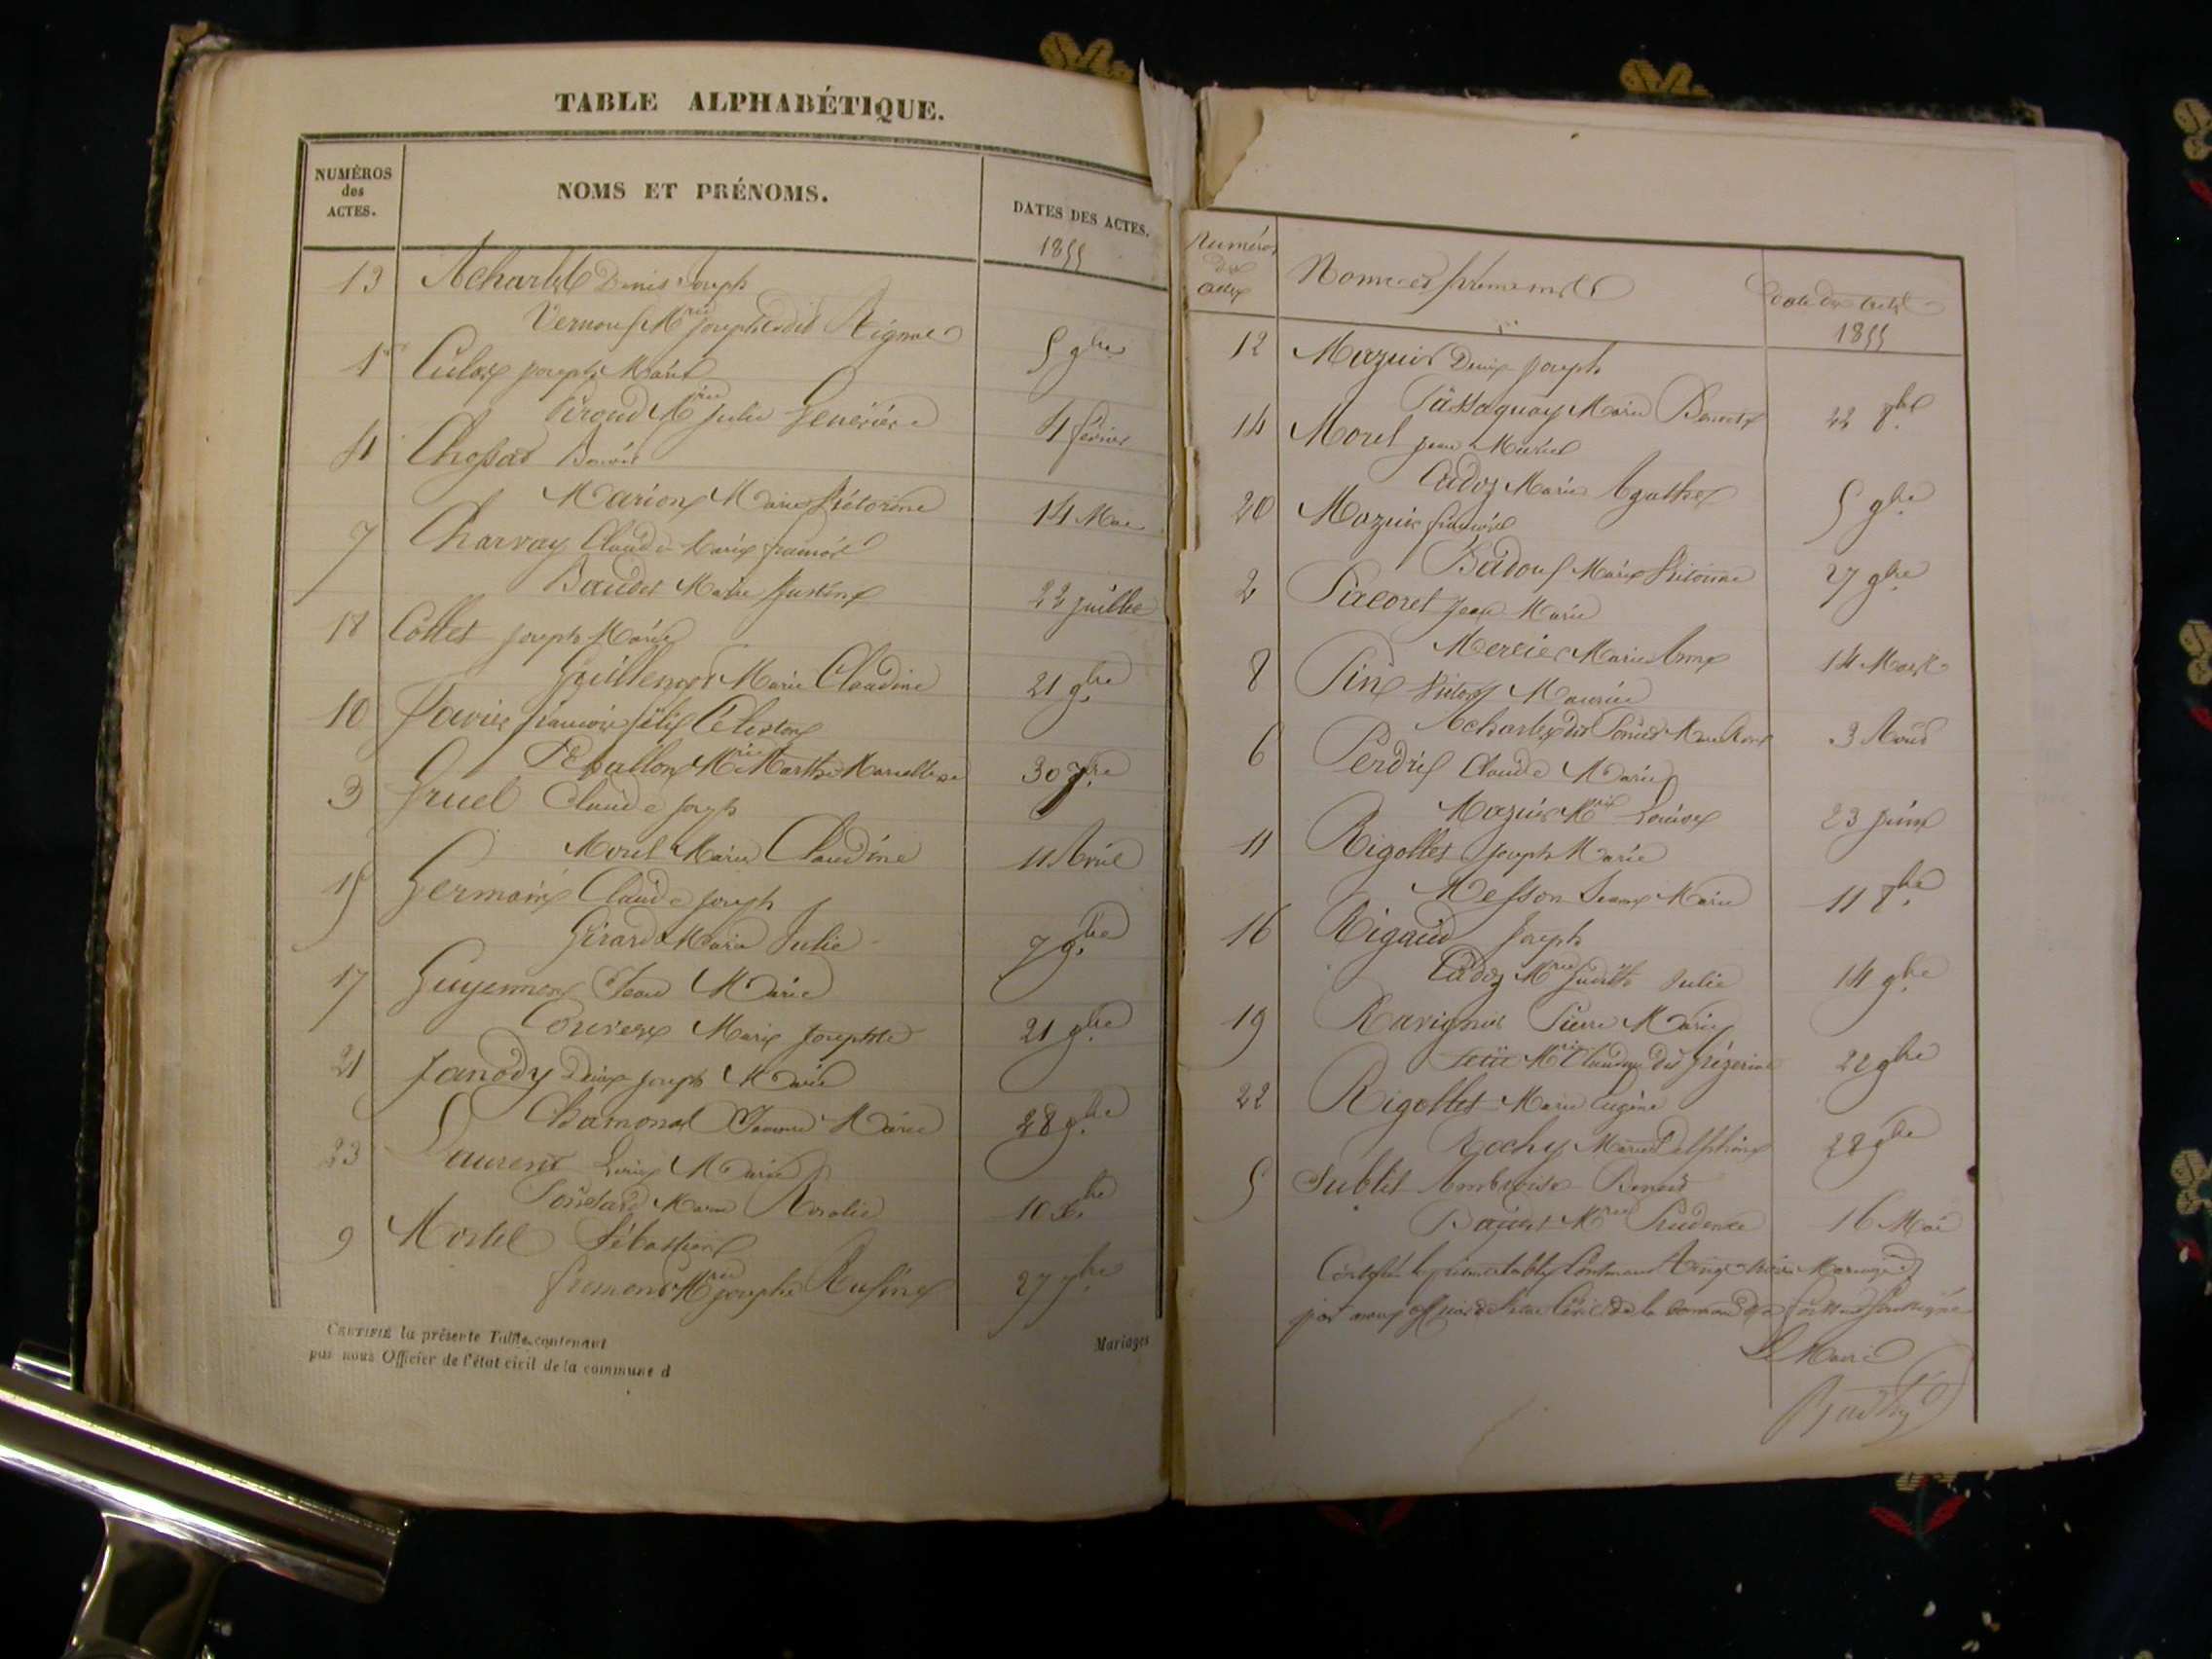 TABLE ALPHABÉTIQUE.
NUMÉROS
des
ACTES.
NOMS ET PRÉNOMS.
DATES DES ACTES.
1855
13 Denis Joseph
5 9bre
1 Joseph Marie
Piroud Mrie Julie
4 février
4 Chossat Benoit
Marion Marie Victorine
14 Mai
7 Charvay Claude Marie François
Baudet Marie Justine
22 juillet
18 Collet Joseph Marie
Guillemot Marie Claudine
21 9bre
10 François Félix
Mrie Marthe
30 7bre
3 Gruel Claude Joseph
Morel Marie Claudine
11 Avril
15 Germain Claude Joseph
Girard Marie Julie
7 9bre
17 Guyennon Jean Marie
Marie Josephte
21 9bre
21 Janody Denis Joseph Marie
Chamonal Jeanne Marie
28 9bre
23 Laurent Louis Marie
Marie Rosalie
10 Xbre
9 Mortel Sébastien
Mrie Josephe Rufine
27 7bre
CERTIFIÉ la présente Table, contenant
Mariages
par nous Officier de l'état civil de la commune d
Numéros
des
actes
Noms et prénoms
Date des actes
1855
12 Mazuir Denis Joseph
Passaquay Marie Benoite
22 8bre
14 Morel Jean Michel
Cadoz Marie Agathe
5 9bre
20 Mazuir François
Marie Victorine
27 9bre
2 Pacoret Jean Marie
Mercier Marie Anne
14 Mars
8 Pin Victor Maurice
3 Août
6 Perdrix Claude Marie
Mazuir Mrie Louise
23 juin
11 Rigollet Joseph Marie
Messon Jeanne Marie
11 8bre
16 Rigaud Joseph
Cadoz Mrie Judith Julie
14 9bre
19 Ravignier Pierre Marie
Mrie dit
22 9bre
22 Rigollet Marie Eugène
Rochy Marie Delphine
28 9bre
5 Sublet Ambroise Benoit
Mrie Prudence
16 Mai
Certifié la présente table contenant Vingt trois Mariages
par nous officier de l'état Civil de la commune de soussigné
Le Maire